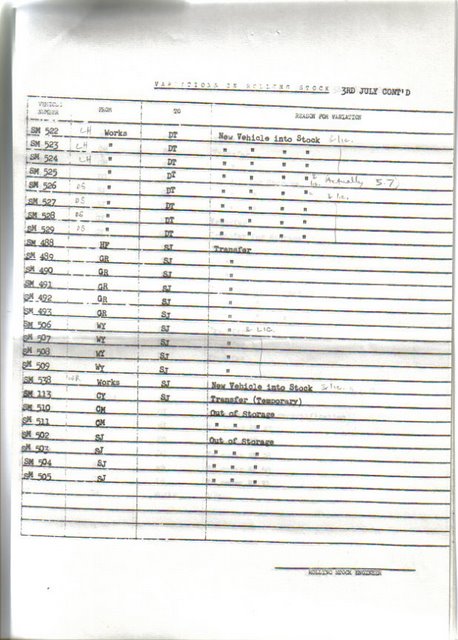 VARIATIONS IN ROLLING STOCK 3RD JULY CONT'D
VEHICLE NUMBER FROM TO REASON FOR VARIATION
SM 522 LH Works DT New Vehicle into Stock & lic.
SM 523 LH " DT " " " "
SM 524 LH " DT " " " "
SM 525 " DT " " " " & lic Actually 5.7)
SM 526 DS " DT " " " " & lic.
SM 527 DS " DT " " " "
SM 528 DS " DT " " " "
SM 529 DS " DT " " " "
SM 488 HF SJ Transfer
SM 489 GR SJ "
SM 490 GR SJ "
SM 491 GR SJ "
SM 492 GR SJ "
SM 493 GR SJ "
SM 506 WY SJ " & Lic.
SM 507 WY SJ "
SM 508 WY SJ "
SM 509 WY SJ "
SM 538 Works SJ New Vehicle into Stock & lic.
SM 113 CY SJ Transfer (Temporary)
SM 510 CM Out of Storage
SM 511 CM " " "
SM 502 SJ Out of Storage
SM 503 SJ " " "
SM 504 SJ " " "
SM 505 SJ " " "
ROLLING STOCK ENGINEER